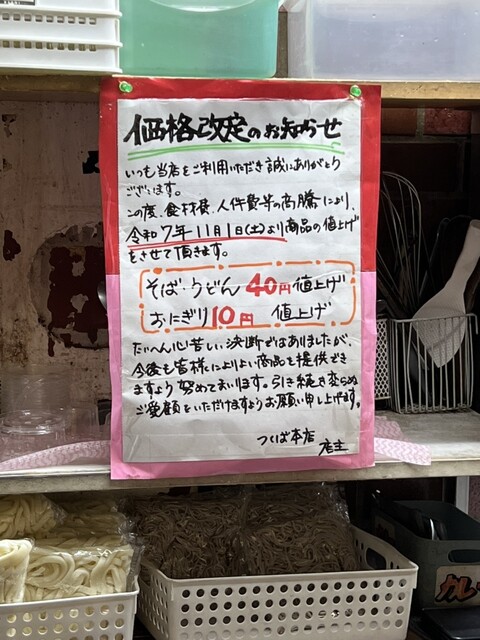 価格改定のお知らせ
いつも当店をご利用いただき誠にありがとう
ございます。
この度、食材費、人件費等の高騰により、
令和7年11月1日(土)より商品の値上げ
をさせて頂きます。
そば・うどん 40円値上げ
おにぎり10円 値上げ
たいへん心苦しい決断ではありましたが、
今後も皆様により良い商品を提供でき
ますよう努めてまいります。引き続き変らぬ
ご愛顧をいただけますようお願い申し上げます。
つくば本店
店主
カレー